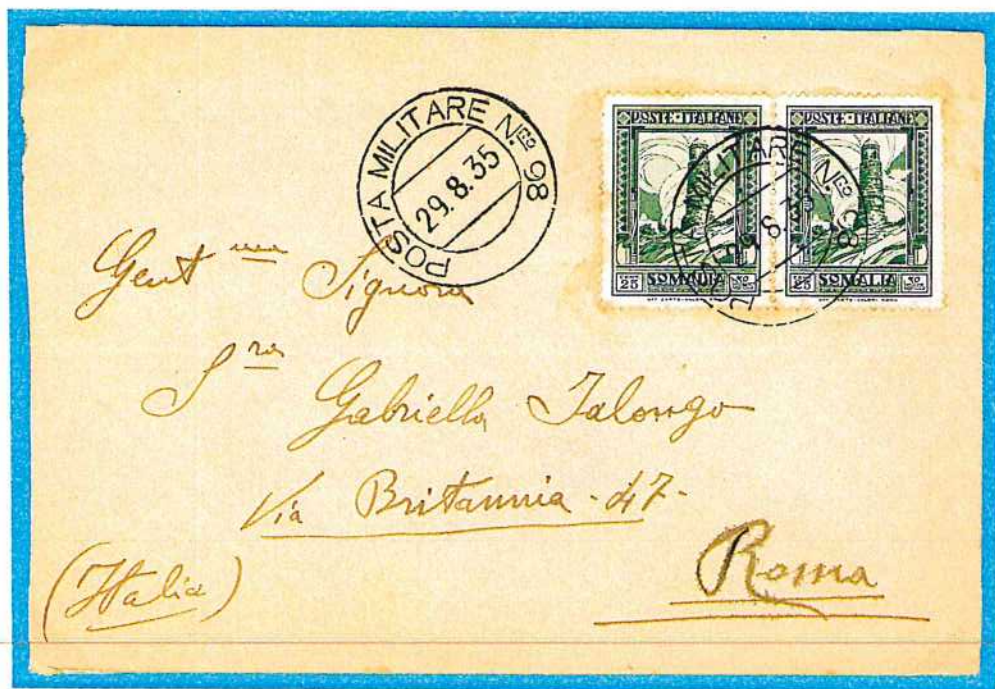 POSTA MILITARE Nro 98
29.8.35
POSTE·ITALIANE
25 SOMALIA
POSTE·ITALIANE
25 SOMALIA
MILITARE Nro 98
29.8.35
Gent ma Signora
S ra Gabriella Ialongo
Via Britannia - 47-
Roma
(Italia)